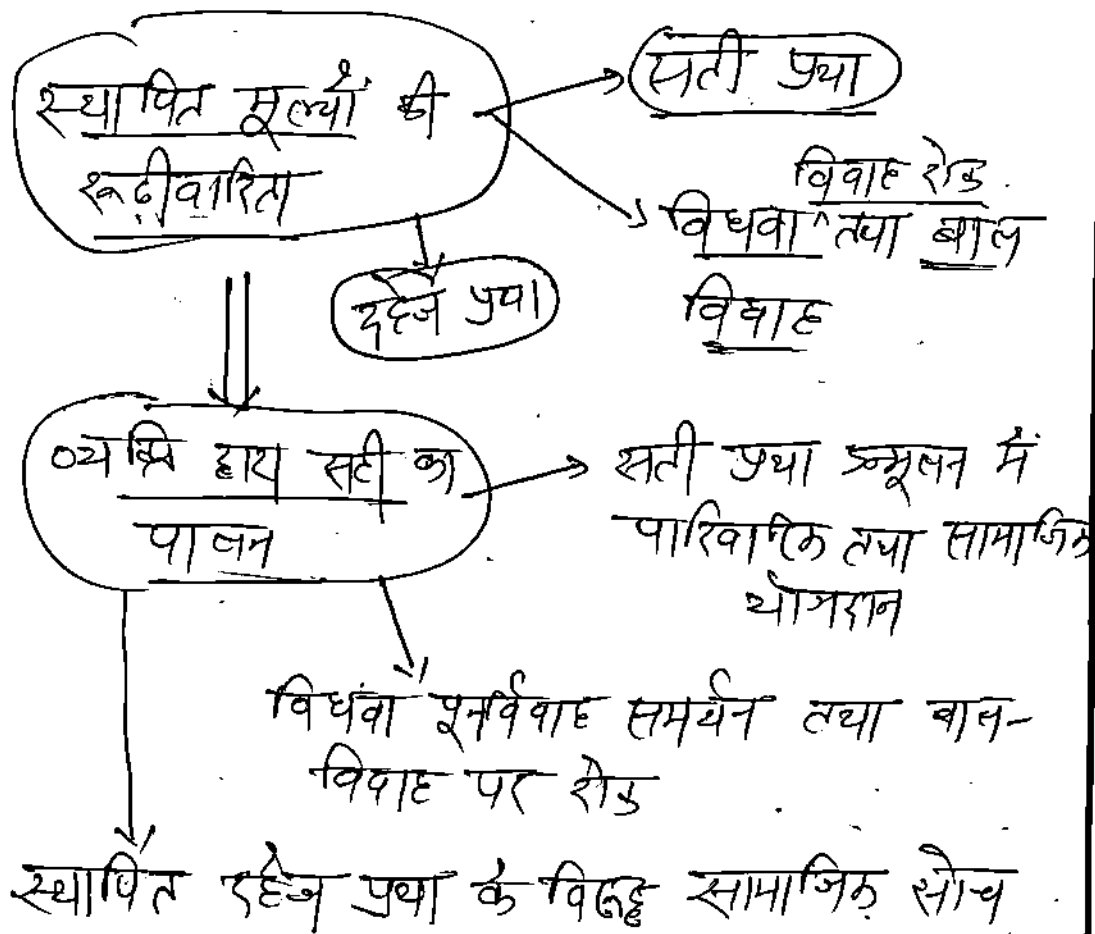 स्थापित मूल्यों की
रूढ़ीवारिता
सती प्रथा
विवाह रोक
विधवा ^ तथा बाल
विवाह
दहेज प्रथा
व्यक्ति द्वारा सही का
पालन
सती प्रथा उन्मूलन में
पारिवारिक तथा सामाजिक
योगदान
विधवा पुनर्विवाह समर्थन तथा बाल-
विवाह पर रोक
स्थापित दहेज प्रथा के विरूद्ध सामाजिक सोच